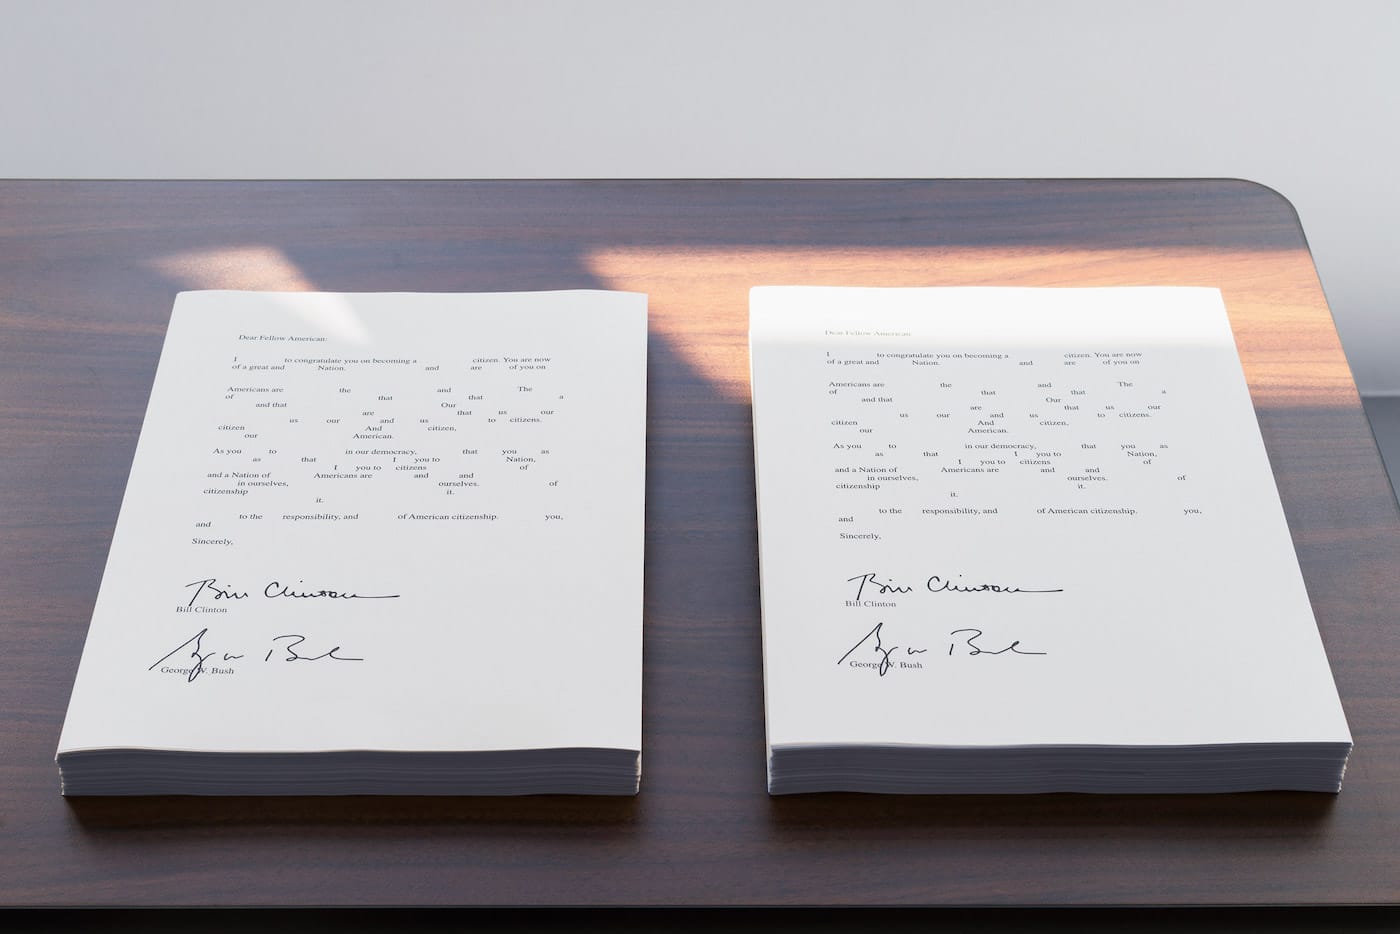 Dear Fellow American:
I to congratulate you on becoming a citizen. You are now
of a great and Nation. and are of you on
Americans are the and The
of that that a
and that Our
are that us our
us our and us to citizens.
citizen And citizen,
our American.
As you to in our democracy, that you as
as that I you to Nation,
I you to citizens of
and a Nation of Americans are and and
in ourselves, ourselves. of
citizenship it.
it.
to the responsibility, and of American citizenship. you,
and
Sincerely,
Bill Clinton
Bill Clinton
George W. Bush
George W. Bush
Dear Fellow American:
I to congratulate you on becoming a citizen. You are now
of a great and Nation. and are of you on
Americans are the and The
of that that a
and that Our
are that us our
us our and us to citizens.
citizen And citizen,
our American.
As you to in our democracy, that you as
as that I you to Nation,
I you to citizens of
and a Nation of Americans are and and
in ourselves, ourselves. of
citizenship it.
it.
to the responsibility, and of American citizenship. you,
and
Sincerely,
Bill Clinton
Bill Clinton
George W. Bush
George W. Bush